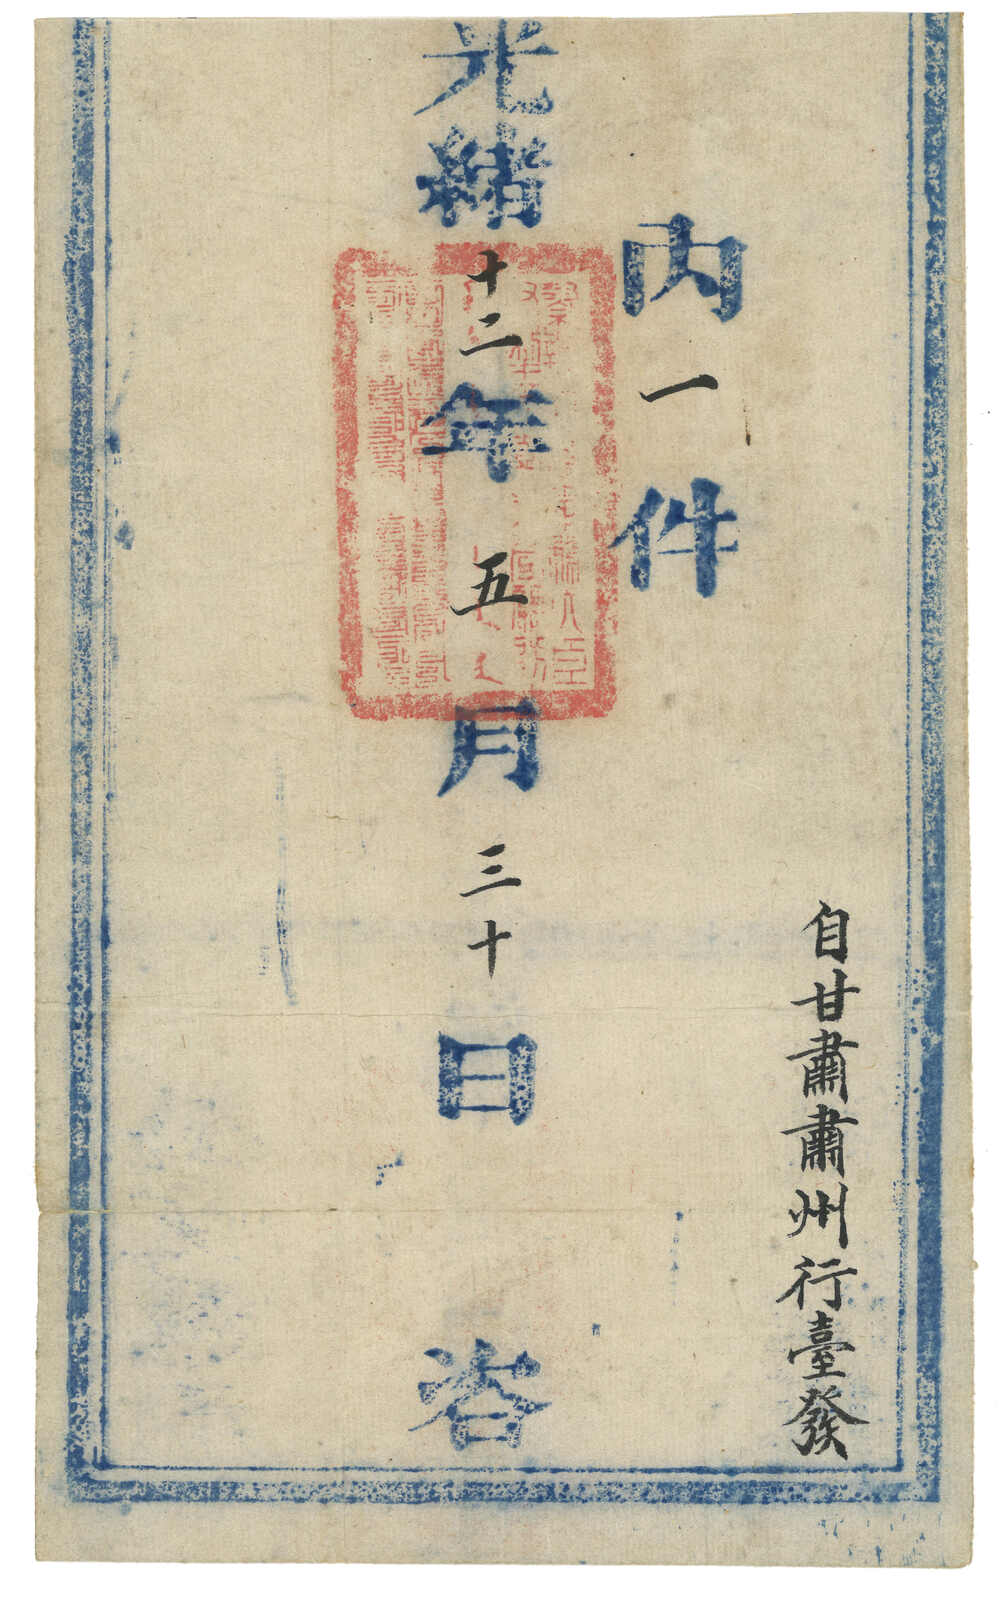 內一件
自甘肅肅州行臺發
光緒十二年五月三十日咨